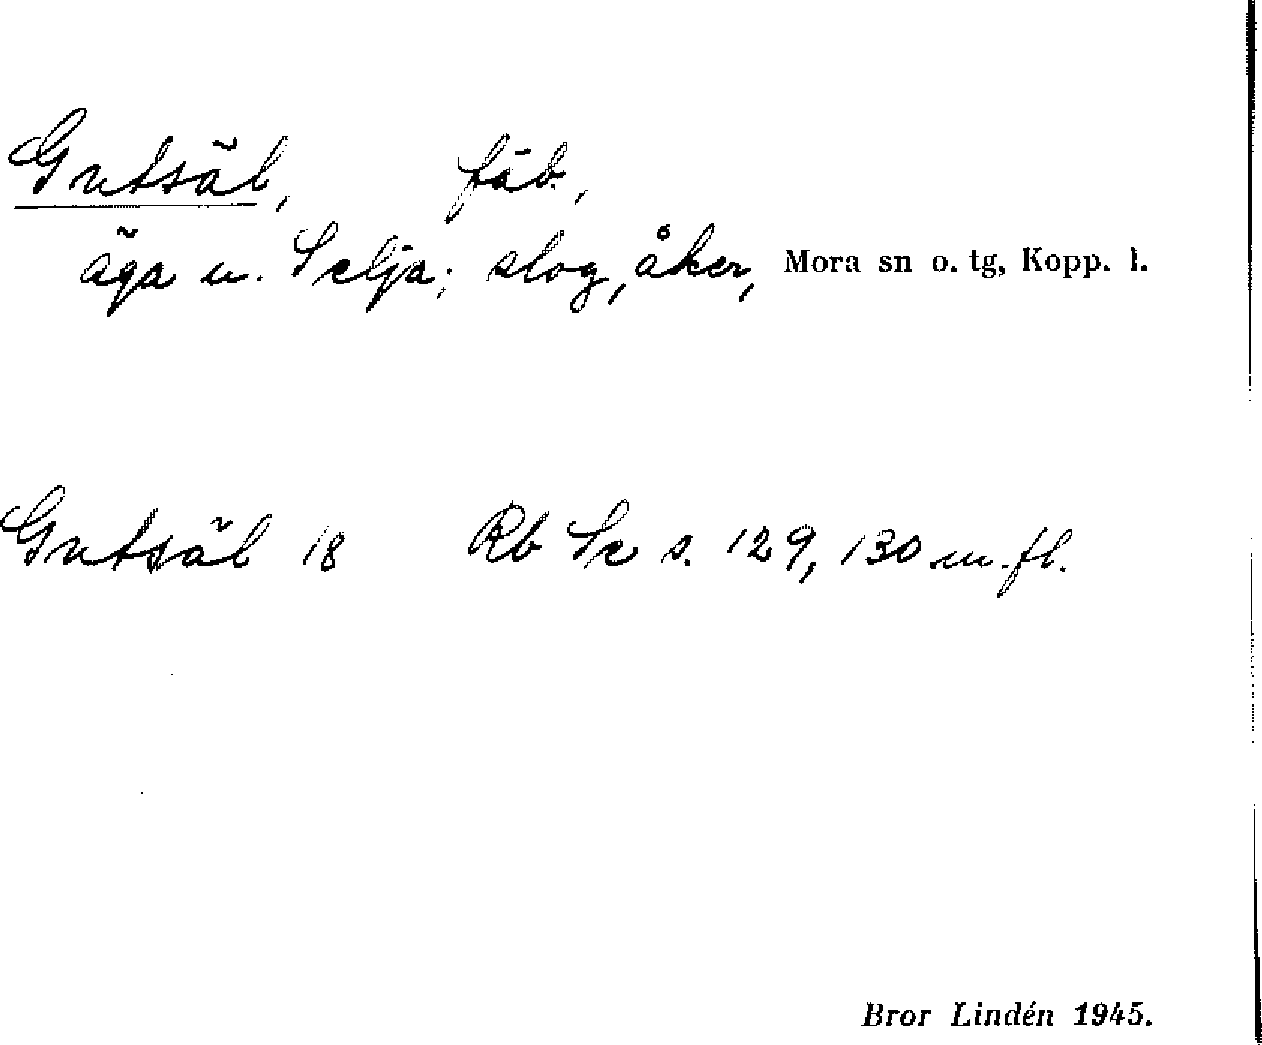 Gutsäl, fäb.,
äga u. Selja; slog, åker, Mora sn o. tg, Kopp. l.
Gutsäl 18 Rb Se s. 129, 130 m. fl.
Bror Lindén 1945.